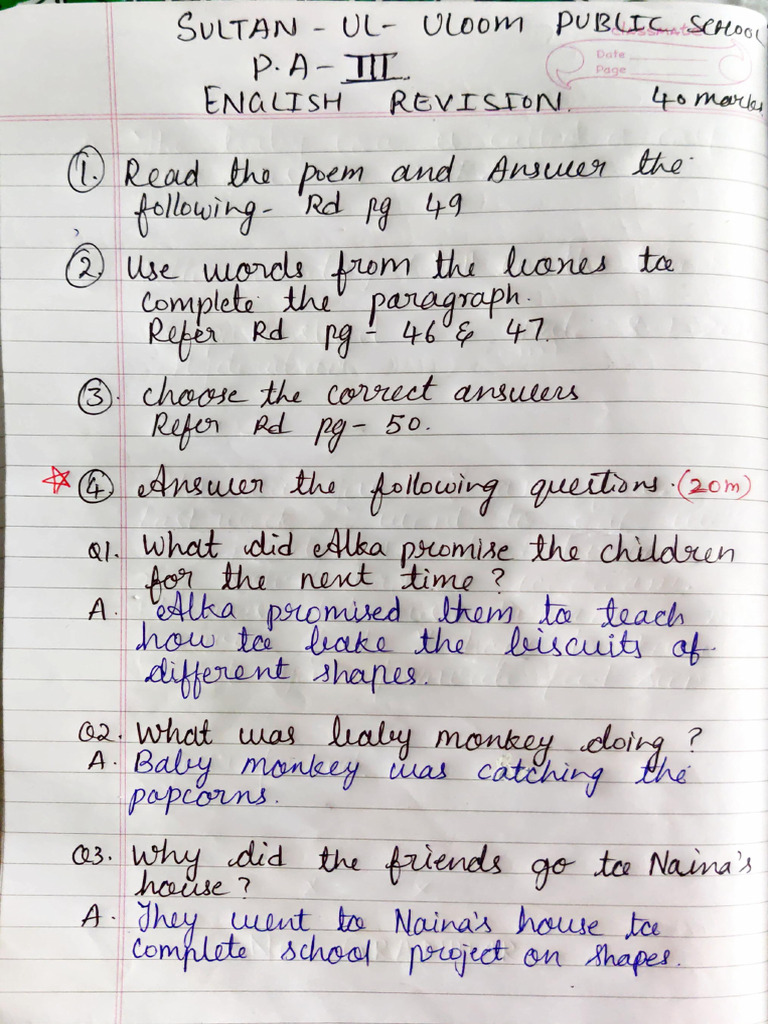 SULTAN - UL - ULOOM PUBLIC SCHOOL
classmate
Date
P.A - III
Page
ENGLISH REVISION. 40 marks
1. Read the poem and Answer the
following - Rd pg 49
2. Use words from the boxes to
complete the paragraph.
Refer Rd pg - 46 & 47.
3. choose the correct answers
Refer Rd pg - 50.
☆ 4. Answer the following questions. (20m)
Q1. What did Alka promise the children
for the next time?
A. Alka promised them to teach
how to bake the biscuits of
different shapes.
Q2. What was baby monkey doing?
A. Baby monkey was catching the
popcorns.
Q3. Why did the friends go to Naina's
house?
A. They went to Naina's house to
complete school project on shapes.